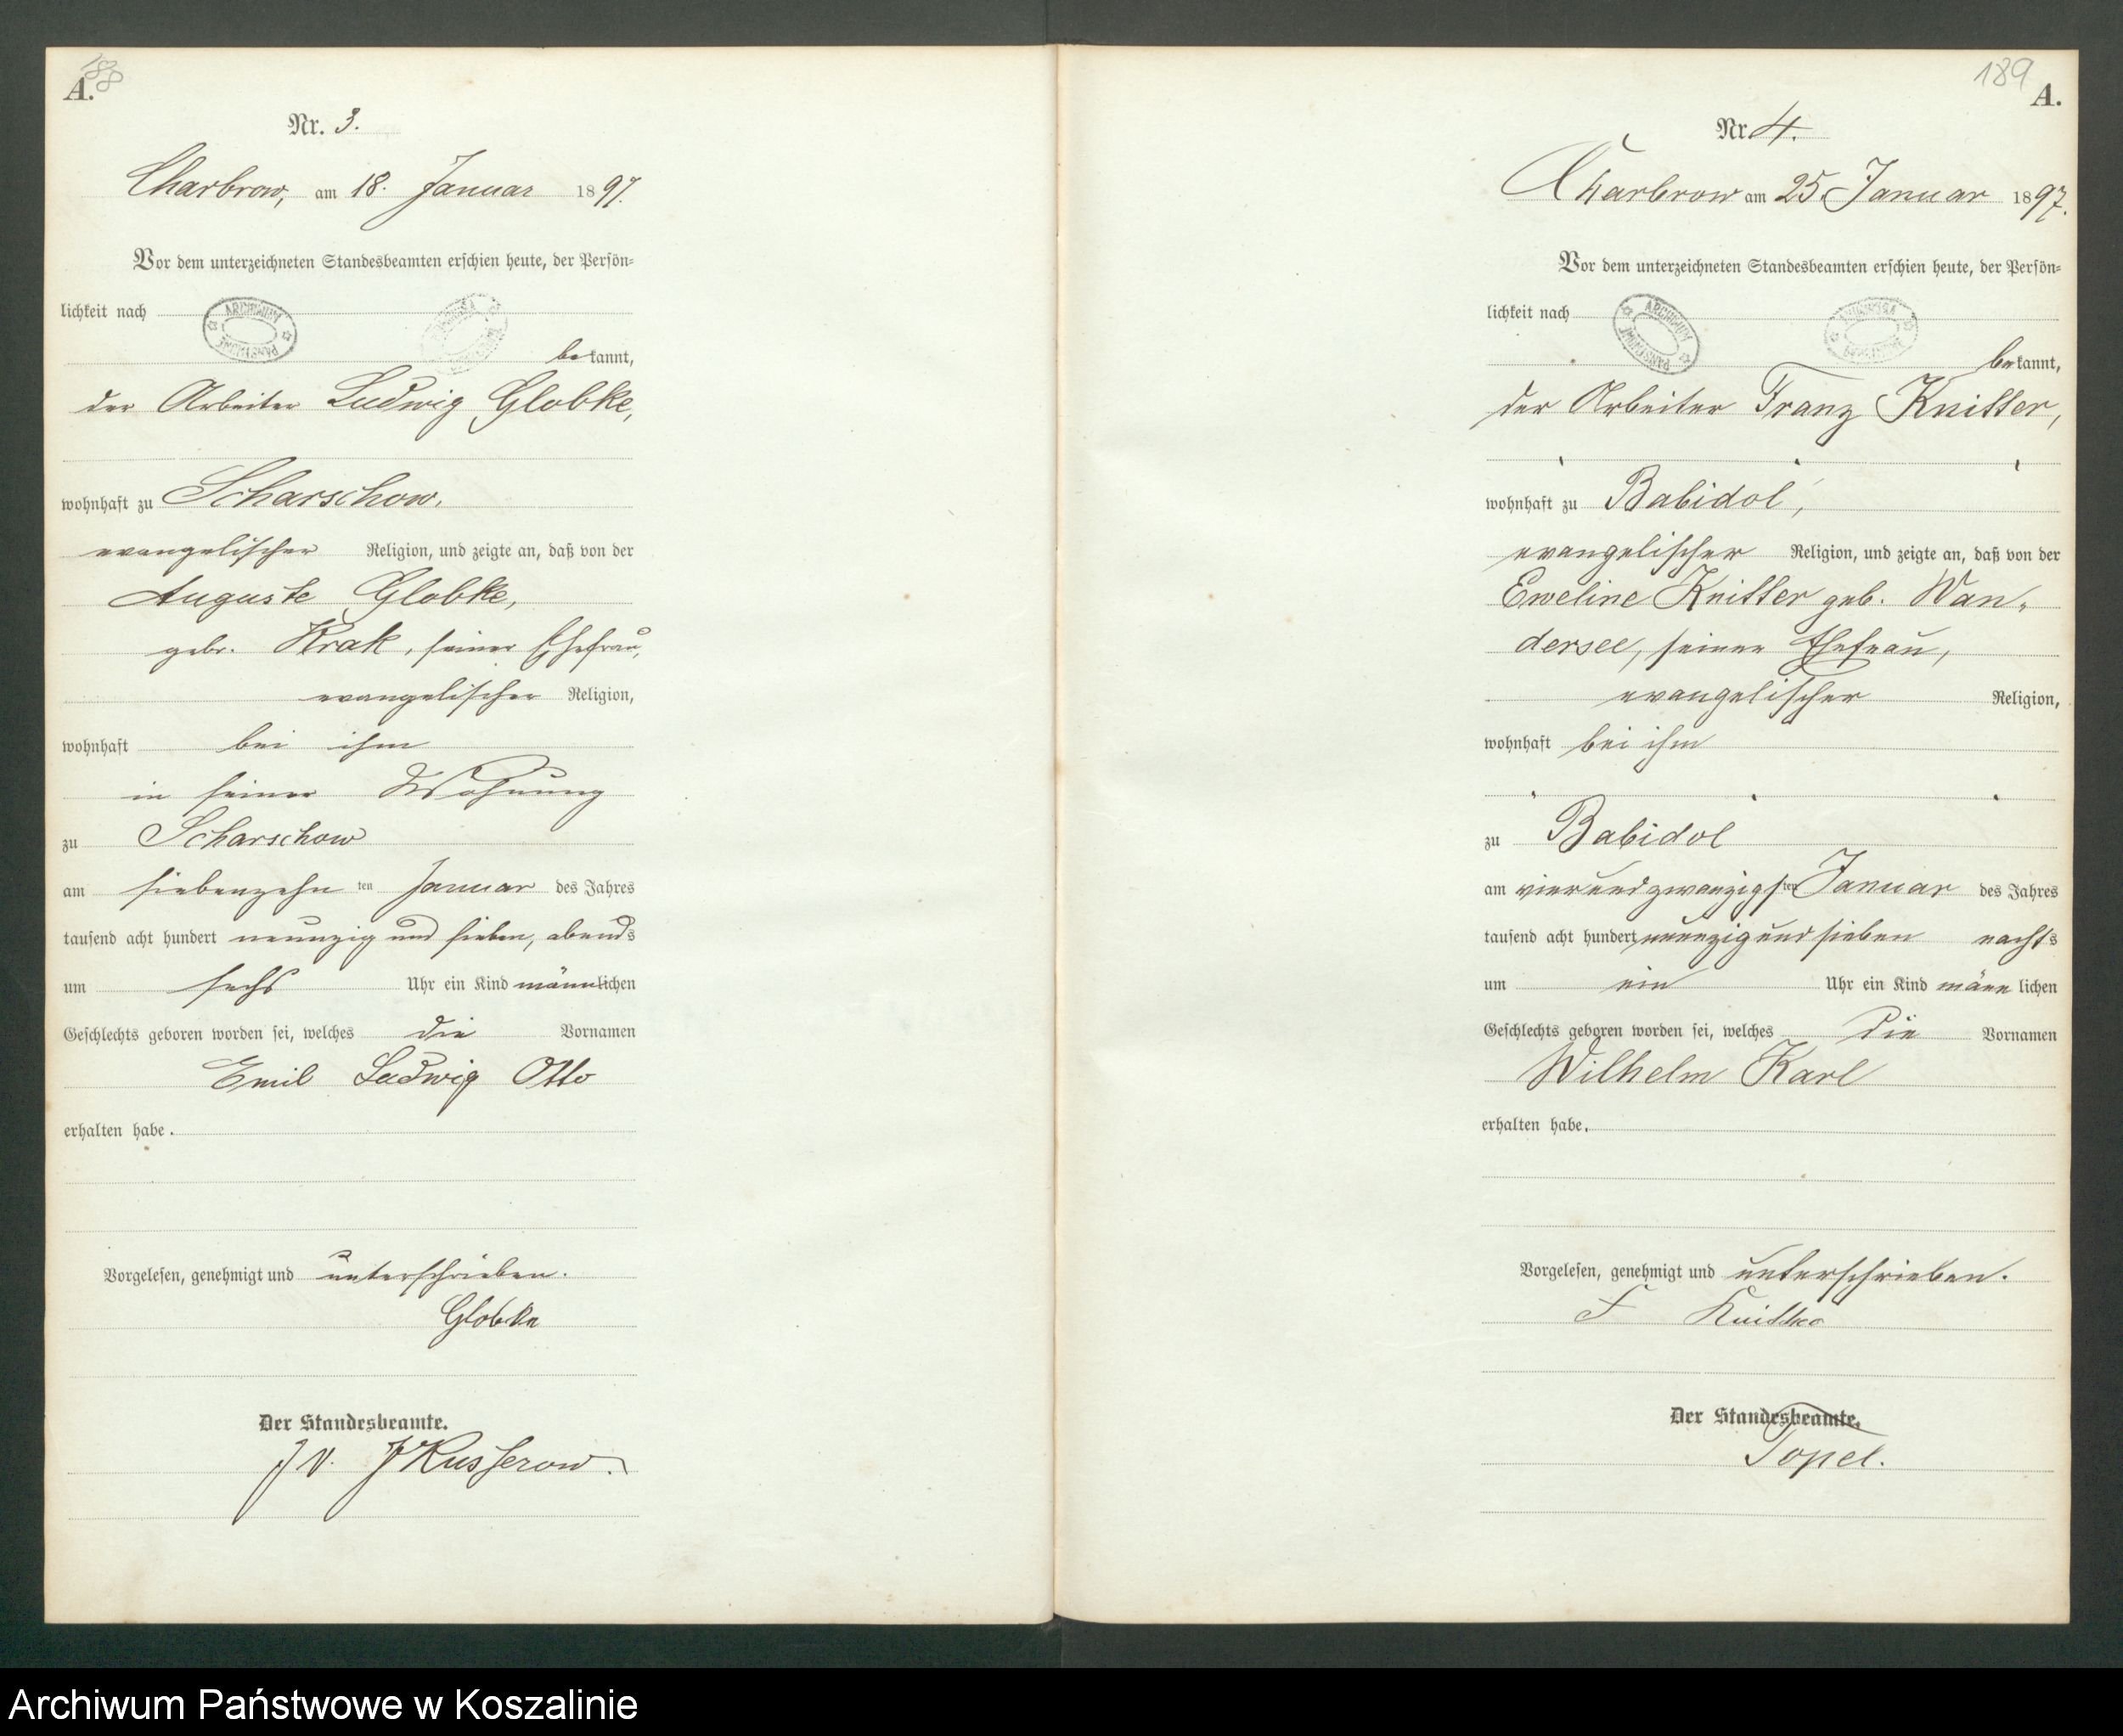 188
A.
Nr. 3.
Charbrow, am 18. Januar 1897.
Vor dem unterzeichneten Standesbeamten erschien heute, der Persön-
lichkeit nach
ARCHIWUM PAŃSTWOWE
bekannt,
der Arbeiter Ludwig Globke,
wohnhaft zu Scharschow,
evangelischer Religion, und zeigte an, daß von der
Auguste Globke,
geb. Krak, seiner Ehefrau,
evangelischer Religion,
wohnhaft bei ihm
in seiner Wohnung
zu Scharschow
am siebenzehnten Januar des Jahres
tausend acht hundert neunzig und sieben, abends
um sechs Uhr ein Kind männlichen
Geschlechts geboren worden sei, welches die Vornamen
Emil Ludwig Otto
erhalten habe.
Vorgelesen, genehmigt und unterschrieben.
Globke
Der Standesbeamte.
J V. Kusserow.
189
A.
Nr. 4.
Charbrow am 25. Januar 1897.
Vor dem unterzeichneten Standesbeamten erschien heute, der Persön-
lichkeit nach
ARCHIWUM PAŃSTWOWE
bekannt,
der Arbeiter Franz Knitter,
wohnhaft zu Babidol,
evangelischer Religion, und zeigte an, daß von der
Eweline Knitter geb. Wan-
dersee, seiner Ehefrau,
evangelischer Religion,
wohnhaft bei ihm
zu Babidol
am vierundzwanzigsten Januar des Jahres
tausend acht hundert neunzig und sieben nachts
um ein Uhr ein Kind männlichen
Geschlechts geboren worden sei, welches die Vornamen
Wilhelm Karl
erhalten habe.
Vorgelesen, genehmigt und unterschrieben.
F Knitter
Der Standesbeamte.
Topel.
Archiwum Państwowe w Koszalinie